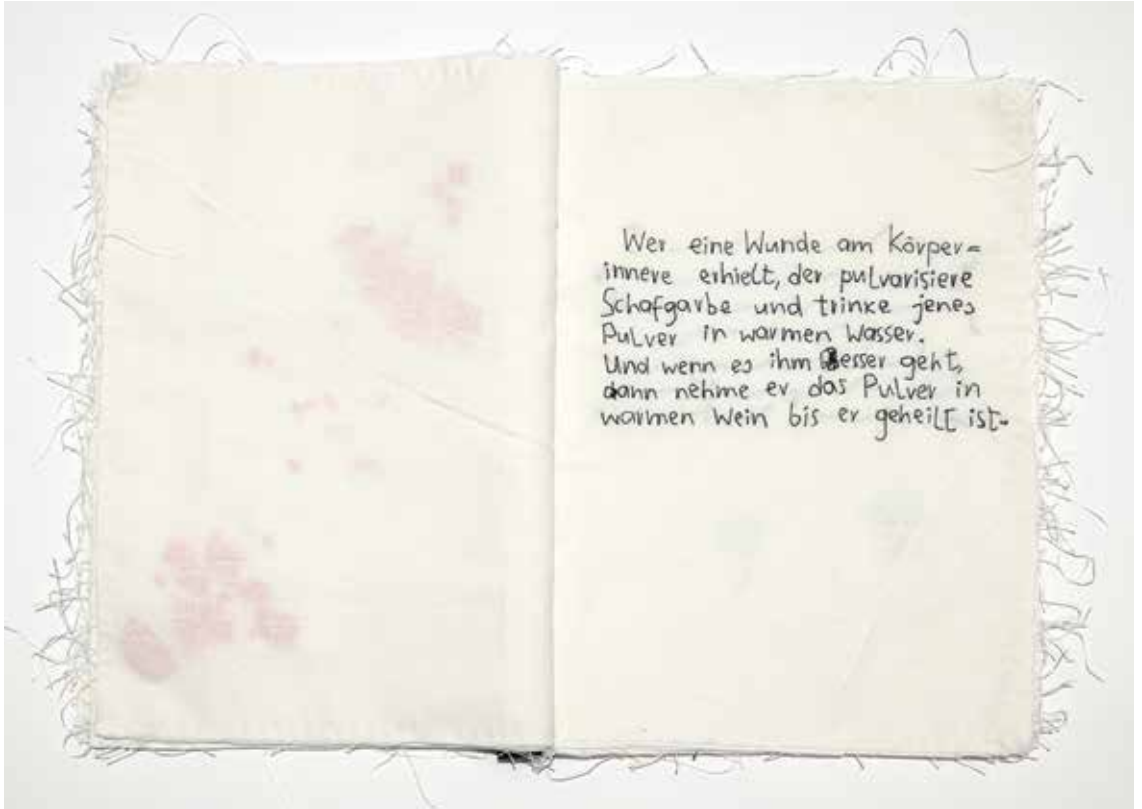 Wer eine Wunde am Körper=
innere erhielt, der pulvarisiere
Schafgarbe und trinke jenes
Pulver in warmen Wasser.
Und wenn es ihm Besser geht,
dann nehme er das Pulver in
warmen Wein bis er geheilt ist-